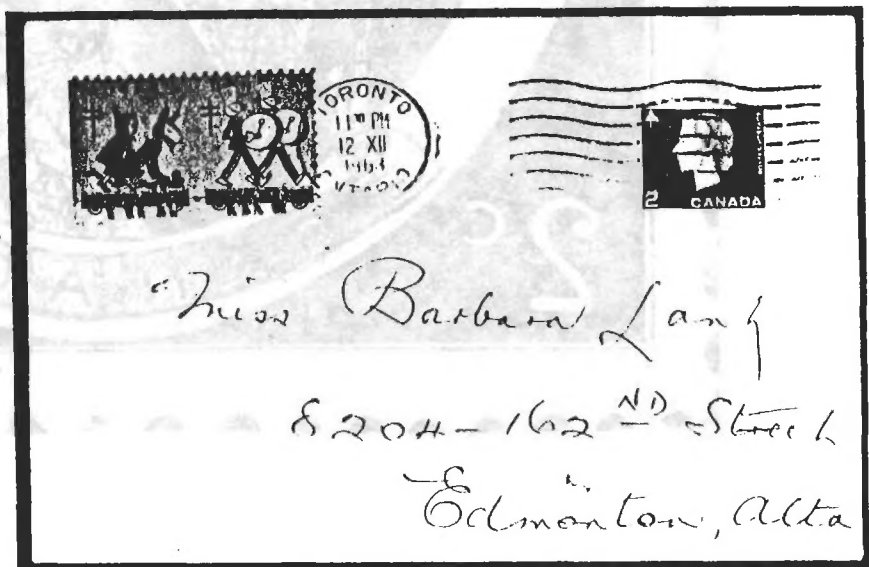 TORONTO
11 PM
12 XII
1963
ONTARIO
2 CANADA
Miss Barbara Lang
8204-162 ND Street
Edmonton, Alta